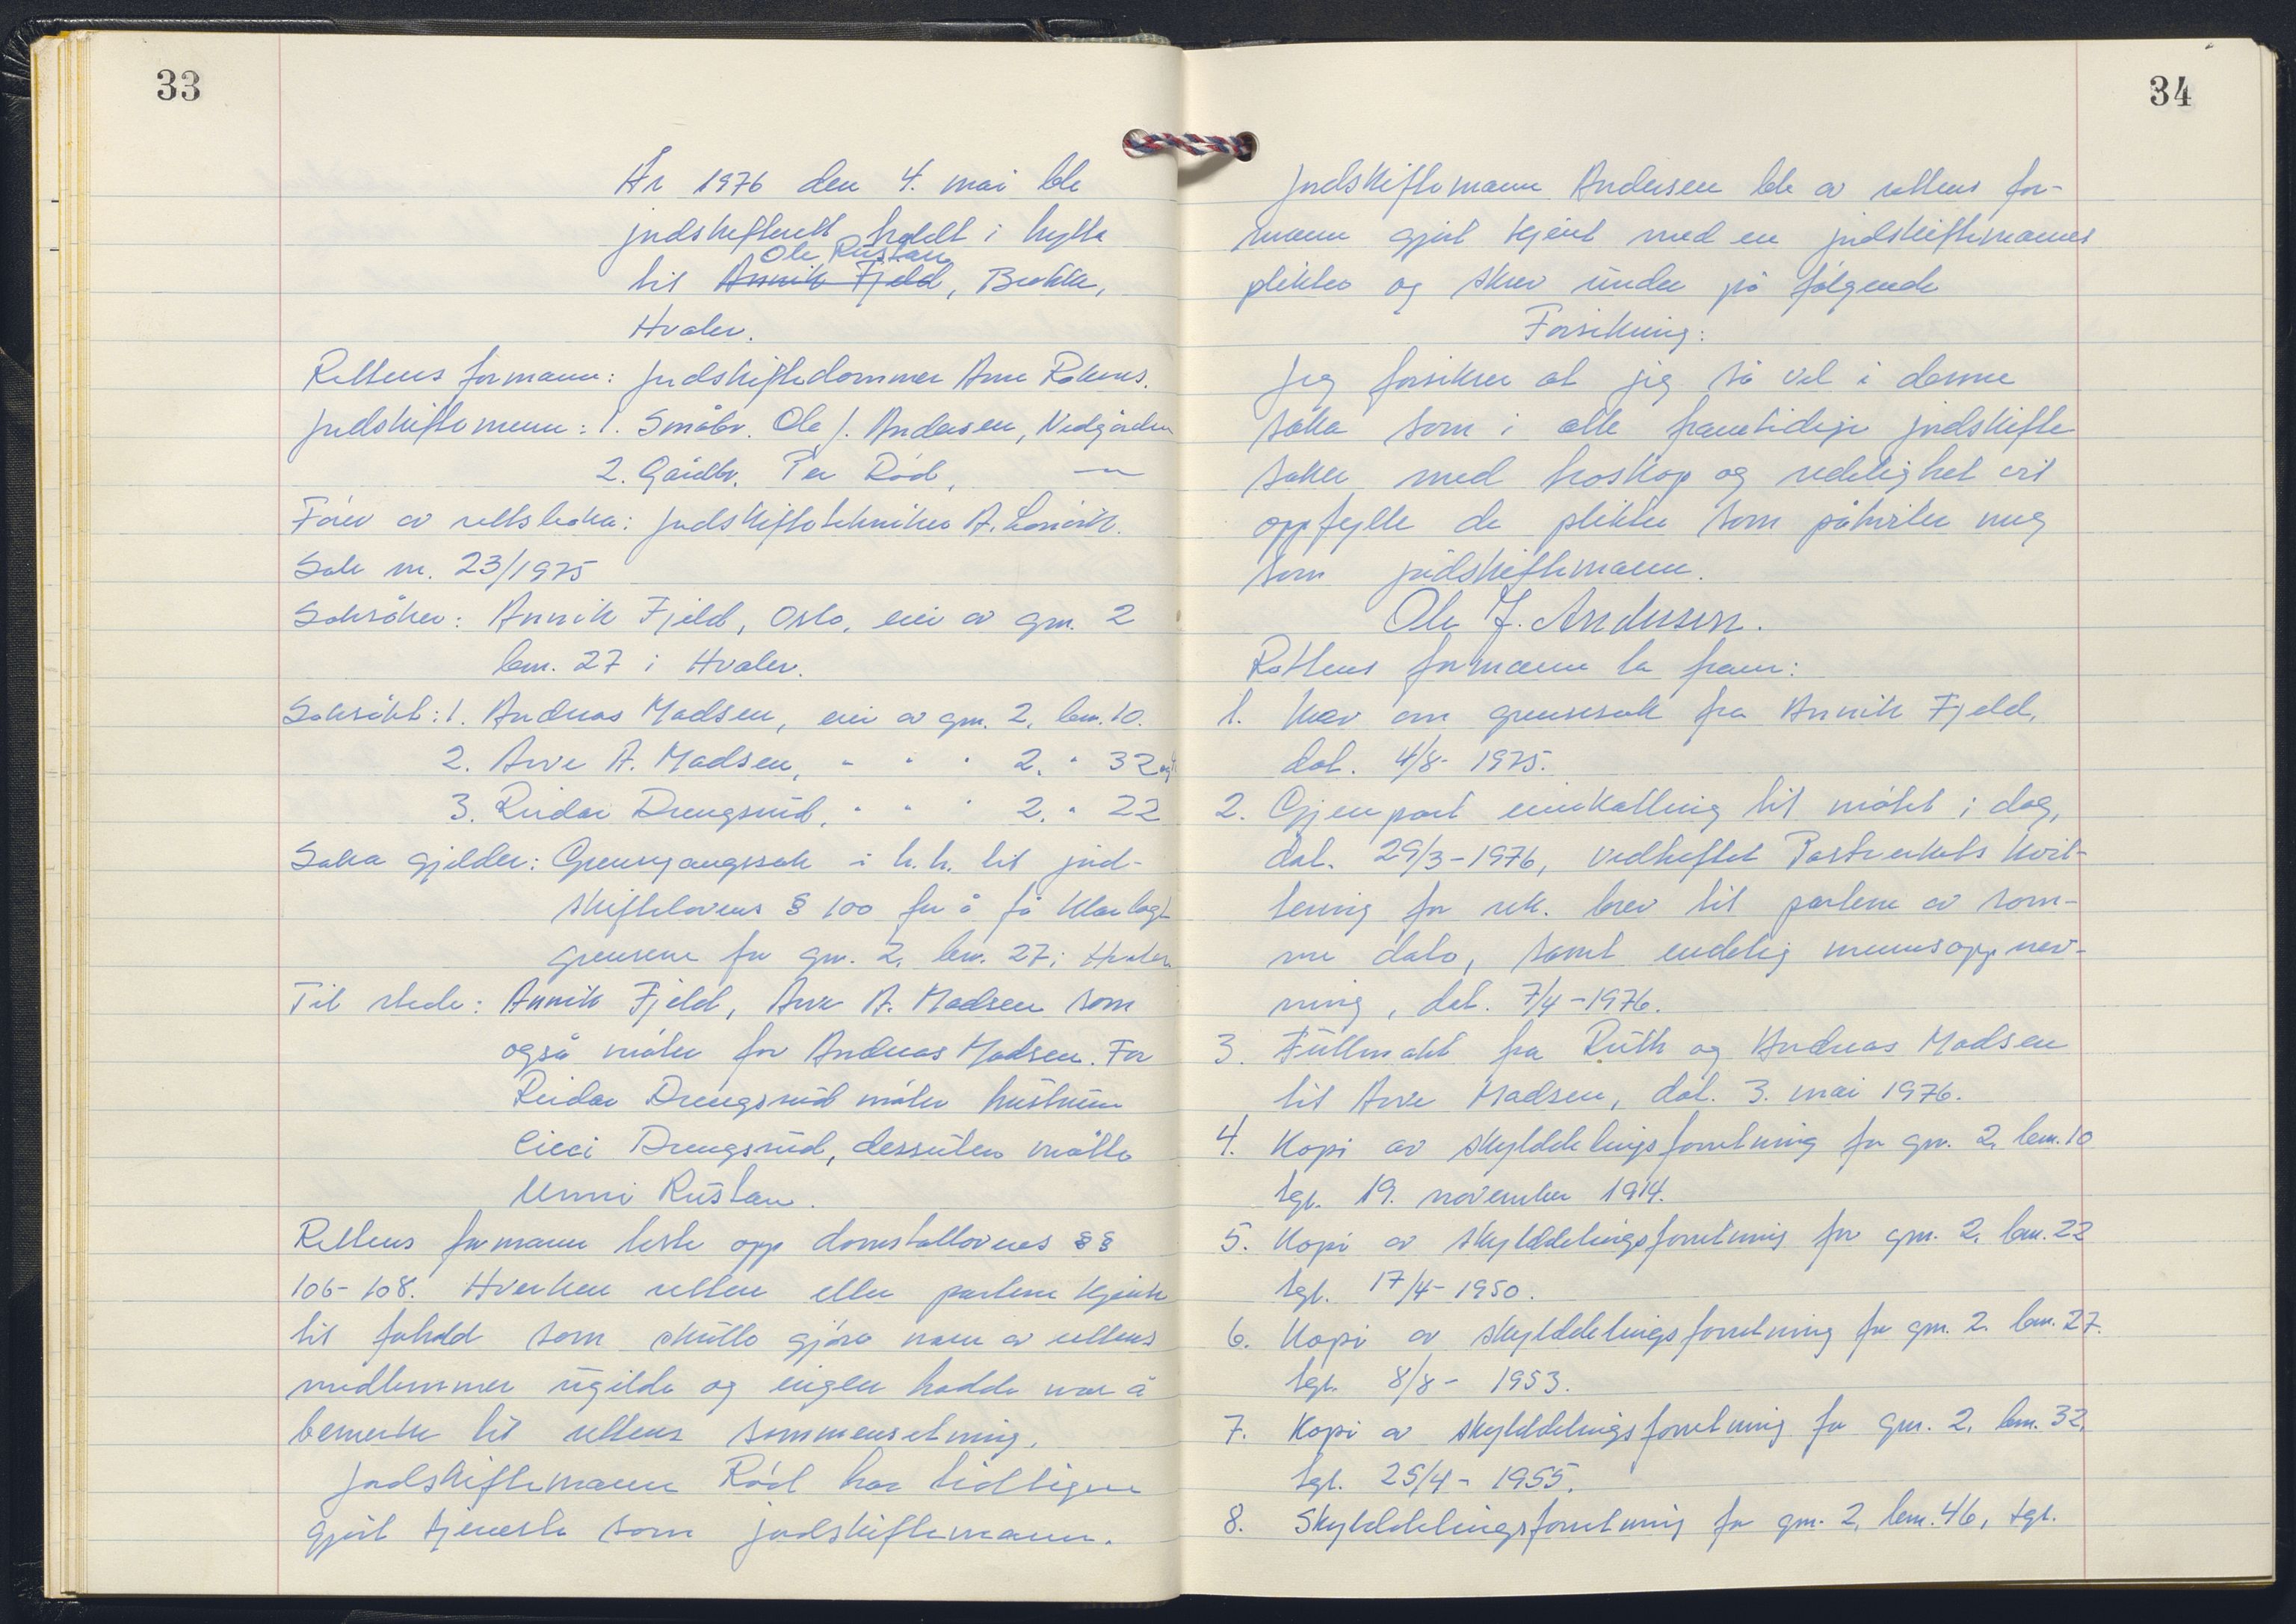 33
År 1976 den 4. mai ble
jordskifterett holdt i hytta
Ole Rustan
til Annik Fjeld, Brekke,
Hvaler.
Rettens formann: Jordskiftedommer Arne Rakens.
Jordskiftemenn: 1. Småbr. Ole J. Andersen, Nedgården
2. Gårdbr. Per Rød, —"—
Fører av rettsboka: Jordskiftetekniker A.
Sak nr. 23/1975
Saksøker: Annik Fjeld, Oslo, eier av gnr. 2
bnr. 27 i Hvaler.
Saksøkt: 1. Andreas Madsen, eier av gnr. 2, bnr. 10.
2. Arve A. Madsen, " " " 2. " 32 og
3. Reidar Drengsrud, " " " 2. " 22
Saka gjelder: Grensegangssak i h.h. til jord-
skiftelovens § 100 for å få klarlagt
grensene for gnr. 2, bnr. 27 i Hvaler
Til stede: Annik Fjeld, Arve A. Madsen som
også møter for Andreas Madsen. For
Reidar Drengsrud møter hustrun
Cicci Drengsrud, dessuten møtte
Unni Rustan.
Rettens formann leste opp domstollovens §§
106-108. Hverken retten eller partene kjente
til forhold som skulle gjøre noen av rettens
medlemmer ugilde og ingen hadde noe å
bemerke til rettens sammensetning.
Jordskiftemann Rød har tidligere
gjort tjeneste som jordskiftemann.
34
Jordskiftemann Andersen ble av rettens for-
mann gjort kjent med en jordskiftemanns
plikter og skrev under på følgende
Forsikring:
Jeg forsikrer at jeg så vel i denne
saka som i alle framtidige jordskifte
saker med troskap og redelighet vil
oppfylle de plikter som påhviler meg
som jordskiftemann.
Ole J. Andersen.
Rettens formann la fram:
1. Krav om grensesak fra Annik Fjeld,
dat. 4/8- 1975.
2. Gjenpart innkalling til møtet i dag,
dat. 29/3-1976, vedheftet Postverkets kvit-
tering for rek. brev til partene av sam-
me dato, samt endelig mannsoppnev-
ning, dat. 7/4-1976.
3. Fullmakt fra Ruth og Andreas Madsen
til Arve Madsen, dat. 3. mai 1976.
4. Kopi av skylddelingsforretning for gnr. 2, bnr. 10
tgl. 19. november 1914.
5. Kopi av skylddelingsforretning for gnr. 2, bnr. 22
tgl. 17/4- 1950.
6. Kopi av skylddelingsforretning for gnr. 2. bnr. 27.
tgl. 8/8- 1953.
7. Kopi av skylddelingsforretning for gnr. 2, bnr. 32,
tgl. 25/4- 1955.
8. Skylddelingsforretning for gnr. 2, bnr. 46, tgl.